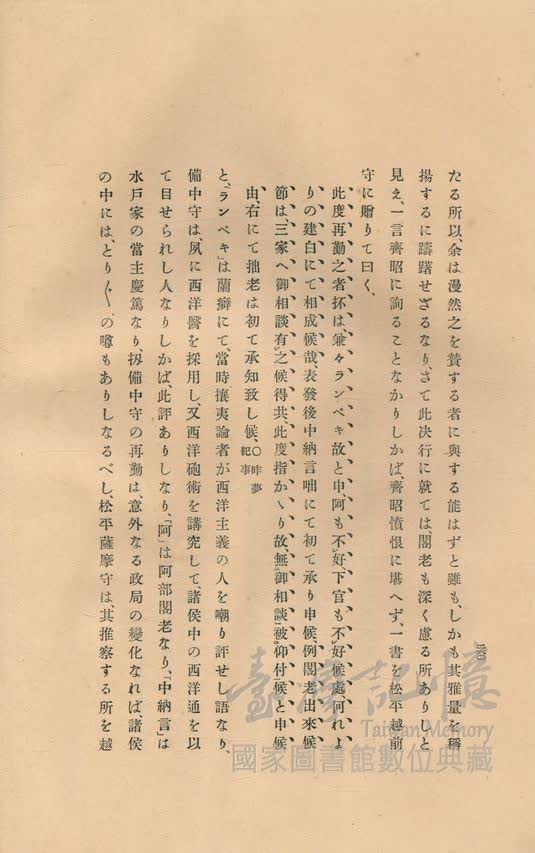 一三〇
たる所以、余は漫然之を賛する者に與する能はずと雖も、しかも其雅量を稱
揚するに躊躇せざるなり、さて此決行に就ては、閣老も深く慮る所ありしと
見え、一言齊昭に詢ることなかりしかば、齊昭憤恨に堪へず、一書を松平越前
守に贈りて曰く、
此度再勤之者抔は、兼々ランペキ故と申、阿も不好、下官も不好候處、何れよ
りの建白にて相成候哉、表發後中納言咄にて初て承り申候、例閣老出來候
節は、三家へ御相談有之候得共、此度指かゝり故、無御相談被仰付候と申候
由、右にて拙老は初て承知致し候、〇昨夢紀事
と、「ランペキ」は蘭癖にて、當時攘夷論者が西洋主義の人を嘲り評せし語なり、
備中守は、夙に西洋醫を採用し、又西洋砲術を講究して、諸侯中の西洋通を以
て目せられし人なりしかば、此評ありしなり、「阿」は阿部閣老なり、「中納言」は
水戸家の當主慶篤なり、扨備中守の再勤は、意外なる政局の變化なれば、諸侯
の中には、とり〴〵の噂もありしなるべし、松平薩摩守は、其推察する所を越
臺灣記憶
Taiwan Memory
國家圖書館數位典藏